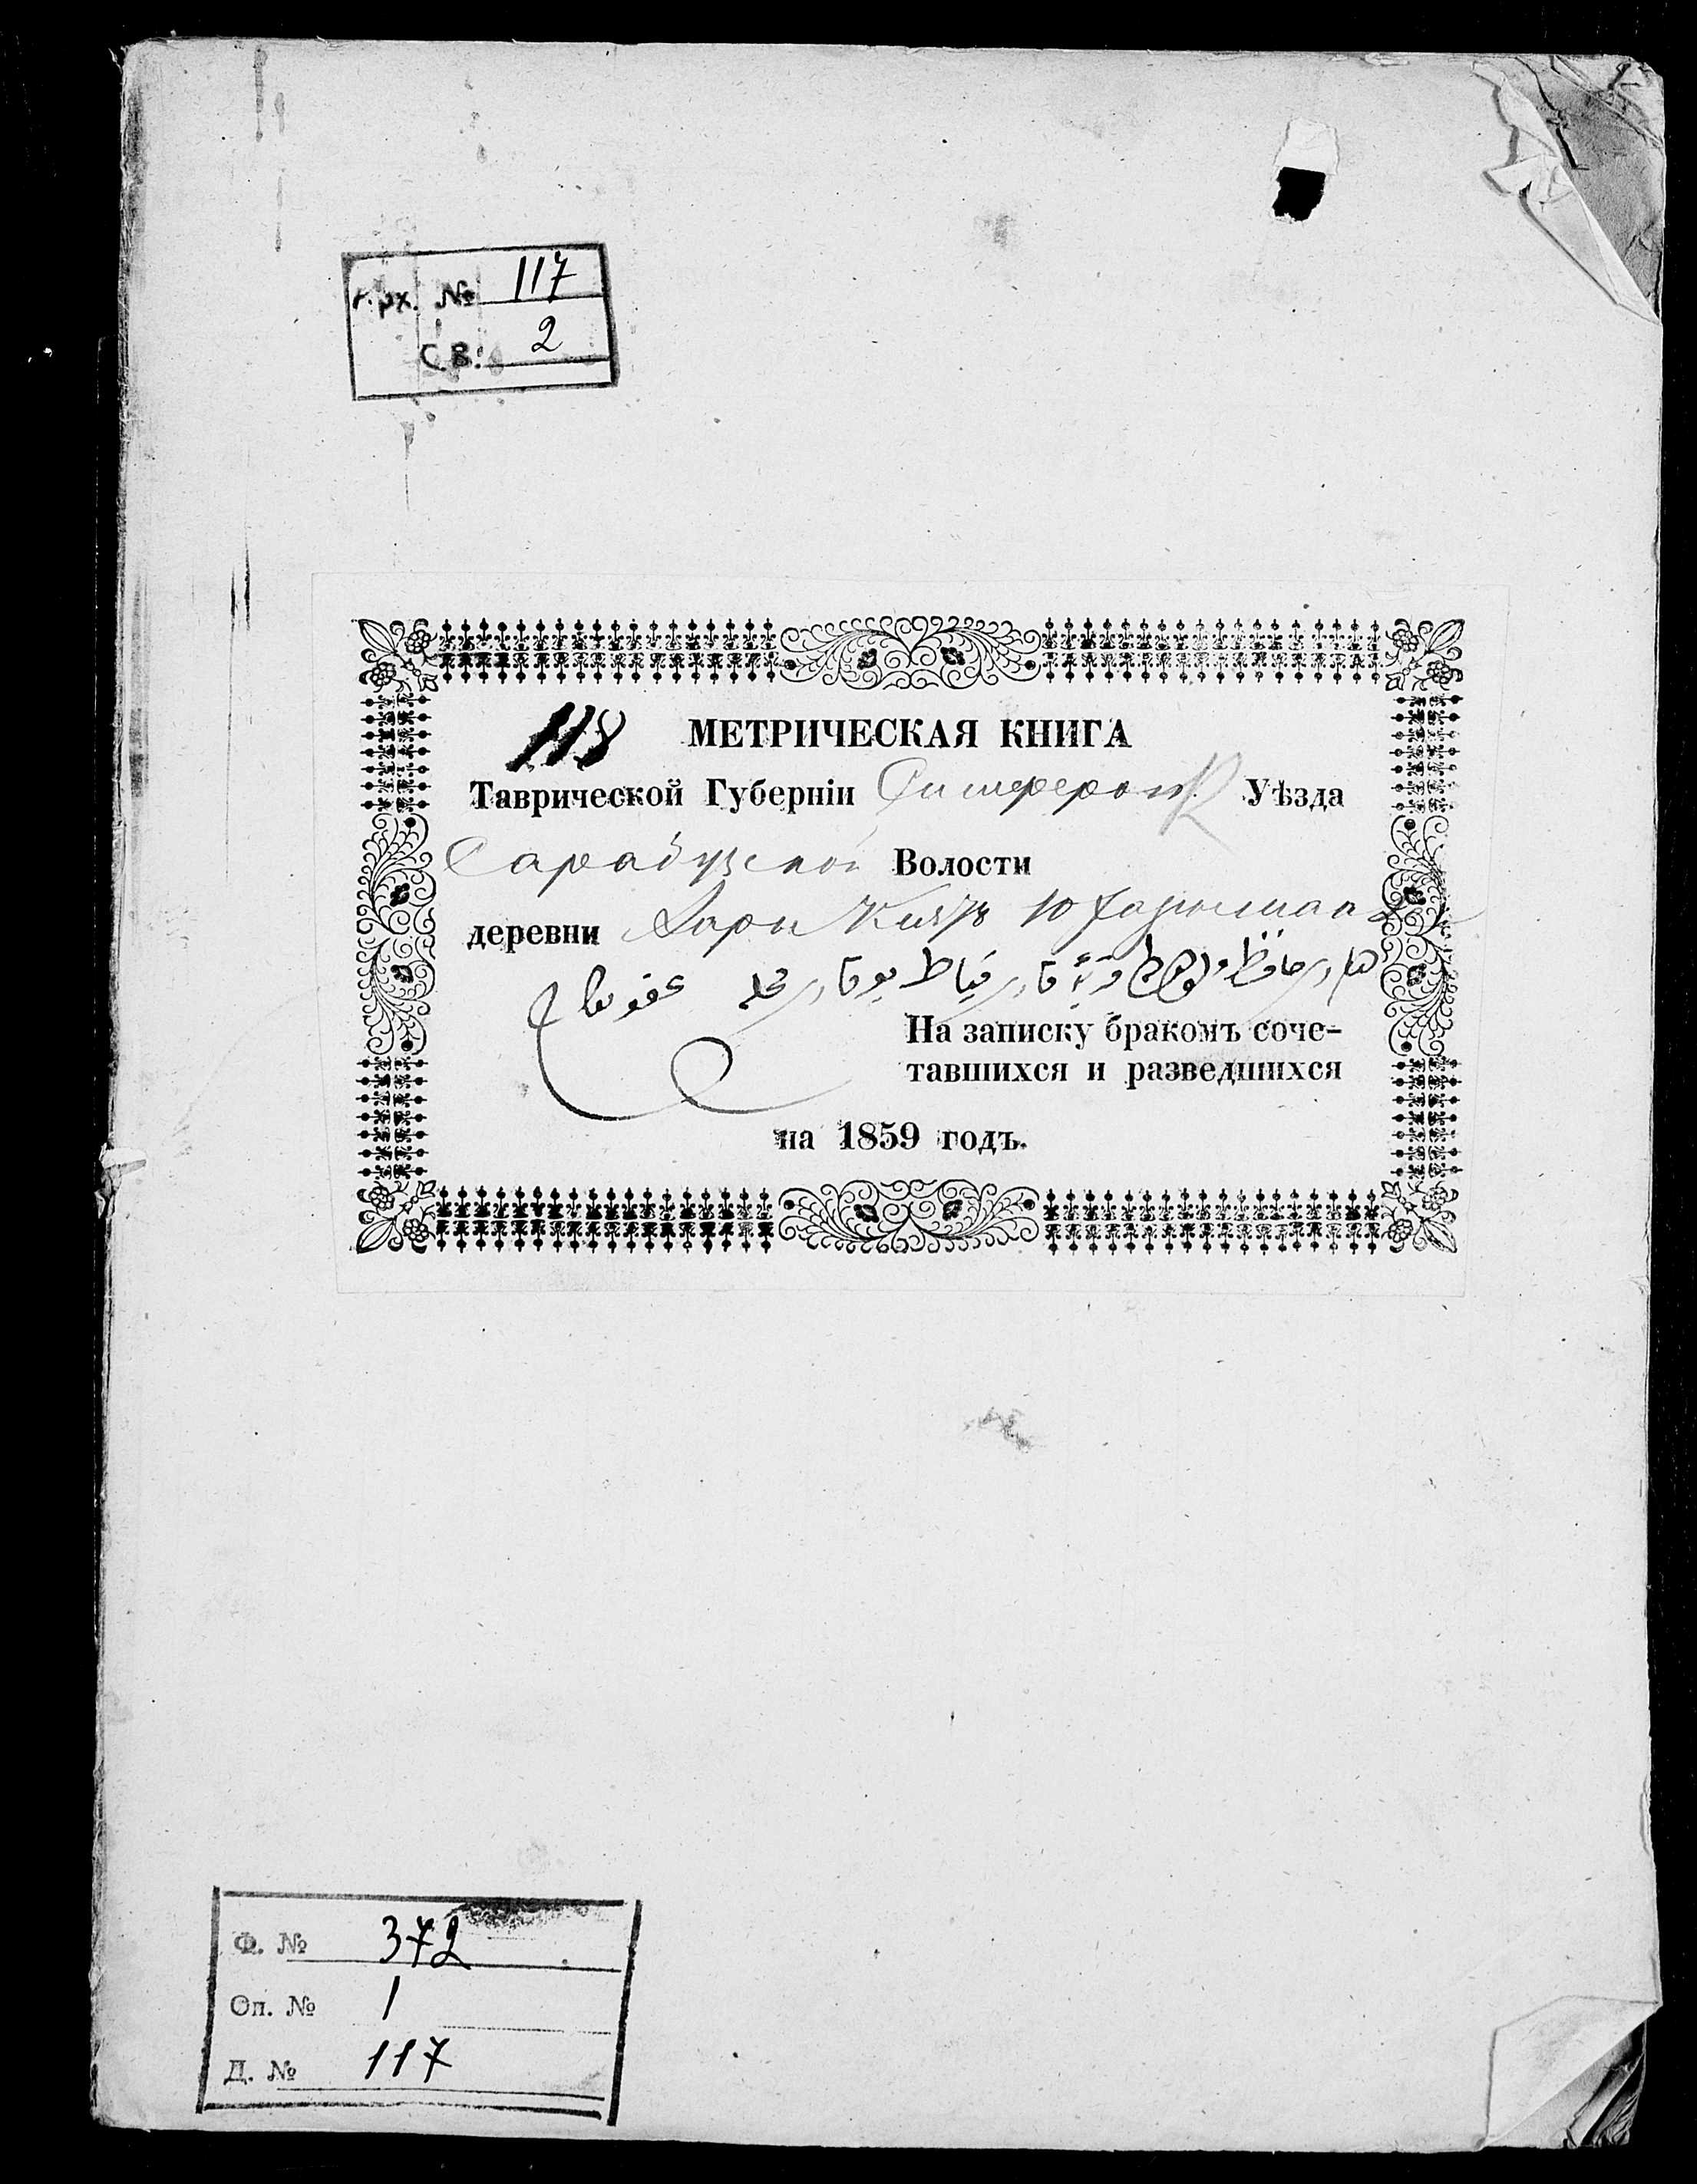 Арх. № 117
Св. 2
118 МЕТРИЧЕСКАЯ КНИГА
Таврической Губерніи Симфероп. Уѣзда
Сарабузской Волости
деревни Кият Ю
قيات يوقارى محله
На записку бракомъ соче-
тавшихся и разведшихся
на 1859 годъ.
Ф. № 372
Оп. № 1
Д. № 117